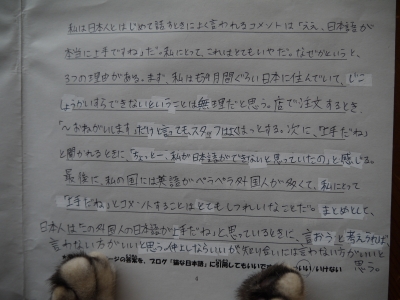 私は日本人とはじめて話すときによく言われるコメントは「ええ、日本語が
本当に上手ですね」だ。私にとって、これはとてもいやだ。なぜかというと、
3つの理由がある。まず、私は5か月間ぐらい日本に住んでいて、じこ
しょうかいすらできないということは無理だと思う。店で注文するとき、
「〜おねがいします」だけ言っても、スタッフはほっとする。次に、「上手だね」
と聞かれるときに、「ちょっと、私が日本語ができないと思っていたの」と感じる。
最後に、私の国には英語がペラペラ外国人が多くて、私にとって
「上手だね」とコメントすることはとてもしつれいなことだ。まとめとして、
日本人は「この外国人の日本語が上手だね」と思っているときに、言おうと考えられば
言わない方がいいと思う。仲よしならいいが、知り合いには言わない方がいいと
思う。
ージの答案を、ブログ「猫な日本語」に引用しても いい いけない